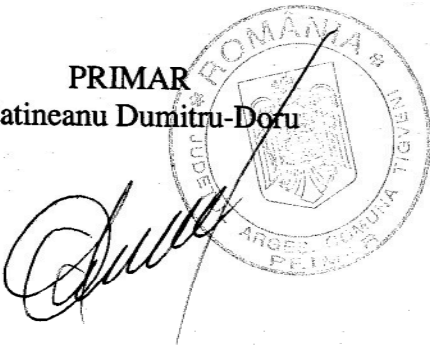 PRIMAR
atineanu Dumitru-Doru
* ROMÂNIA *
JUDEȚ
ARGEȘ, COMUNA TIGVENI